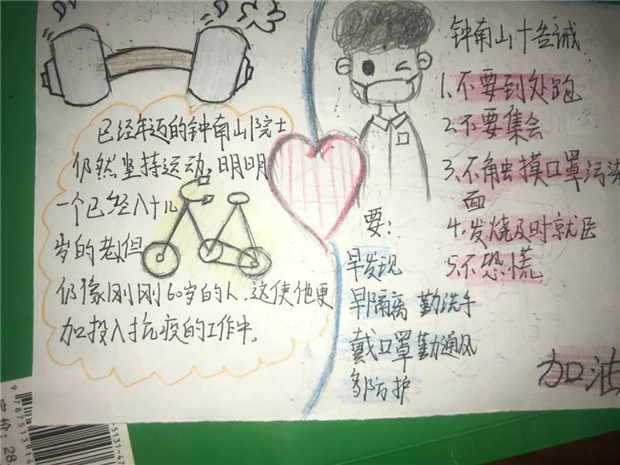 已经年迈的钟南山院士
仍然坚持运动,明明
一个已经八十几
岁的老但
仍像刚刚60岁的人,这使他更
加投入抗疫的工作中。
钟南山十告诫
1.不要到处跑
2.不要集会
3.不触摸口罩污染
面
4.发烧及时就医
5.不恐慌
要:
早发现
早隔离 勤洗手
戴口罩勤通风
多防护
加油
9 787513 14
5131-47
价:28